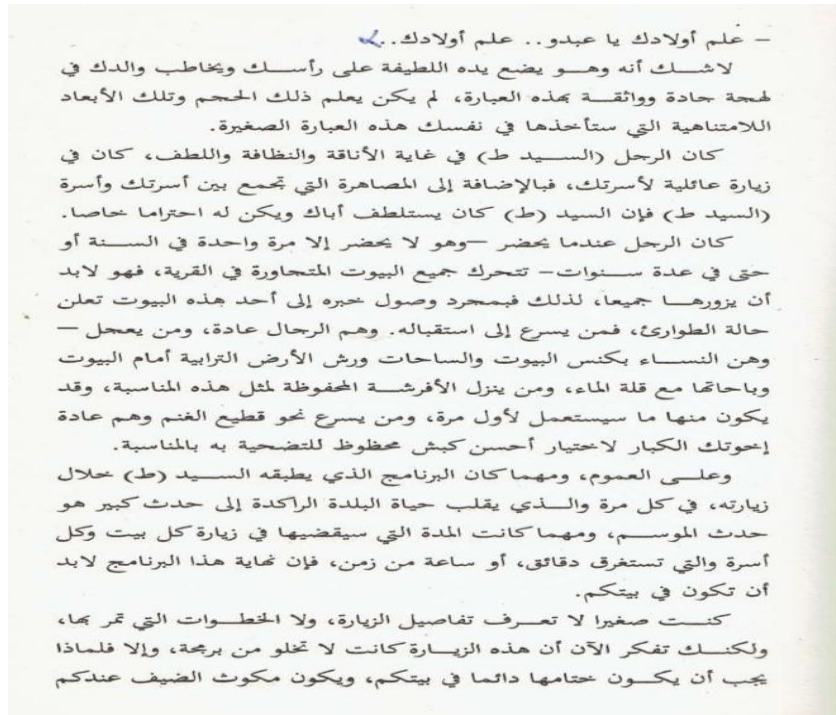 – علم أولادك يا عبدو.. علم أولادك..
لاشك أنه وهو يضع يده اللطيفة على رأسك ويخاطب والدك في
لهجة حادة وواثقة بهذه العبارة، لم يكن يعلم ذلك الحجم وتلك الأبعاد
اللامتناهية التي ستأخذها في نفسك هذه العبارة الصغيرة.
كان الرجل (السيد ط) في غاية الأناقة والنظافة واللطف، كان في
زيارة عائلية لأسرتك، فبالإضافة إلى المصاهرة التي تجمع بين أسرتك وأسرة
(السيد ط) فإن السيد (ط) كان يستلطف أباك ويكن له احتراما خاصا.
كان الرجل عندما يحضر –وهو لا يحضر إلا مرة واحدة في السنة أو
حتى في عدة سنوات– تتحرك جميع البيوت المتجاورة في القرية، فهو لابد
أن يزورها جميعا، لذلك فبمجرد وصول خبره إلى أحد هذه البيوت تعلن
حالة الطوارئ، فمن يسرع إلى استقباله. وهم الرجال عادة، ومن يعجل –
وهن النساء بكنس البيوت والساحات ورش الأرض الترابية أمام البيوت
وباحاتها مع قلة الماء، ومن ينزل الأفرشة المحفوظة لمثل هذه المناسبة، وقد
يكون منها ما سيستعمل لأول مرة، ومن يسرع نحو قطيع الغنم وهم عادة
إخوتك الكبار لاختيار أحسن كبش محظوظ للتضحية به بالمناسبة.
وعلى العموم، ومهما كان البرنامج الذي يطبقه السيد (ط) خلال
زيارته، في كل مرة والذي يقلب حياة البلدة الراكدة إلى حدث كبير هو
حدث الموسم، ومهما كانت المدة التي سيقضيها في زيارة كل بيت وكل
أسرة والتي تستغرق دقائق، أو ساعة من زمن، فإن نهاية هذا البرنامج لابد
أن تكون في بيتكم.
كنت صغيرا لا تعرف تفاصيل الزيارة، ولا الخطوات التي تمر بها،
ولكنك تفكر الآن أن هذه الزيارة كانت لا تخلو من برمجة، وإلا فلماذا
يجب أن يكون ختامها دائما في بيتكم، ويكون مكوث الضيف عندكم